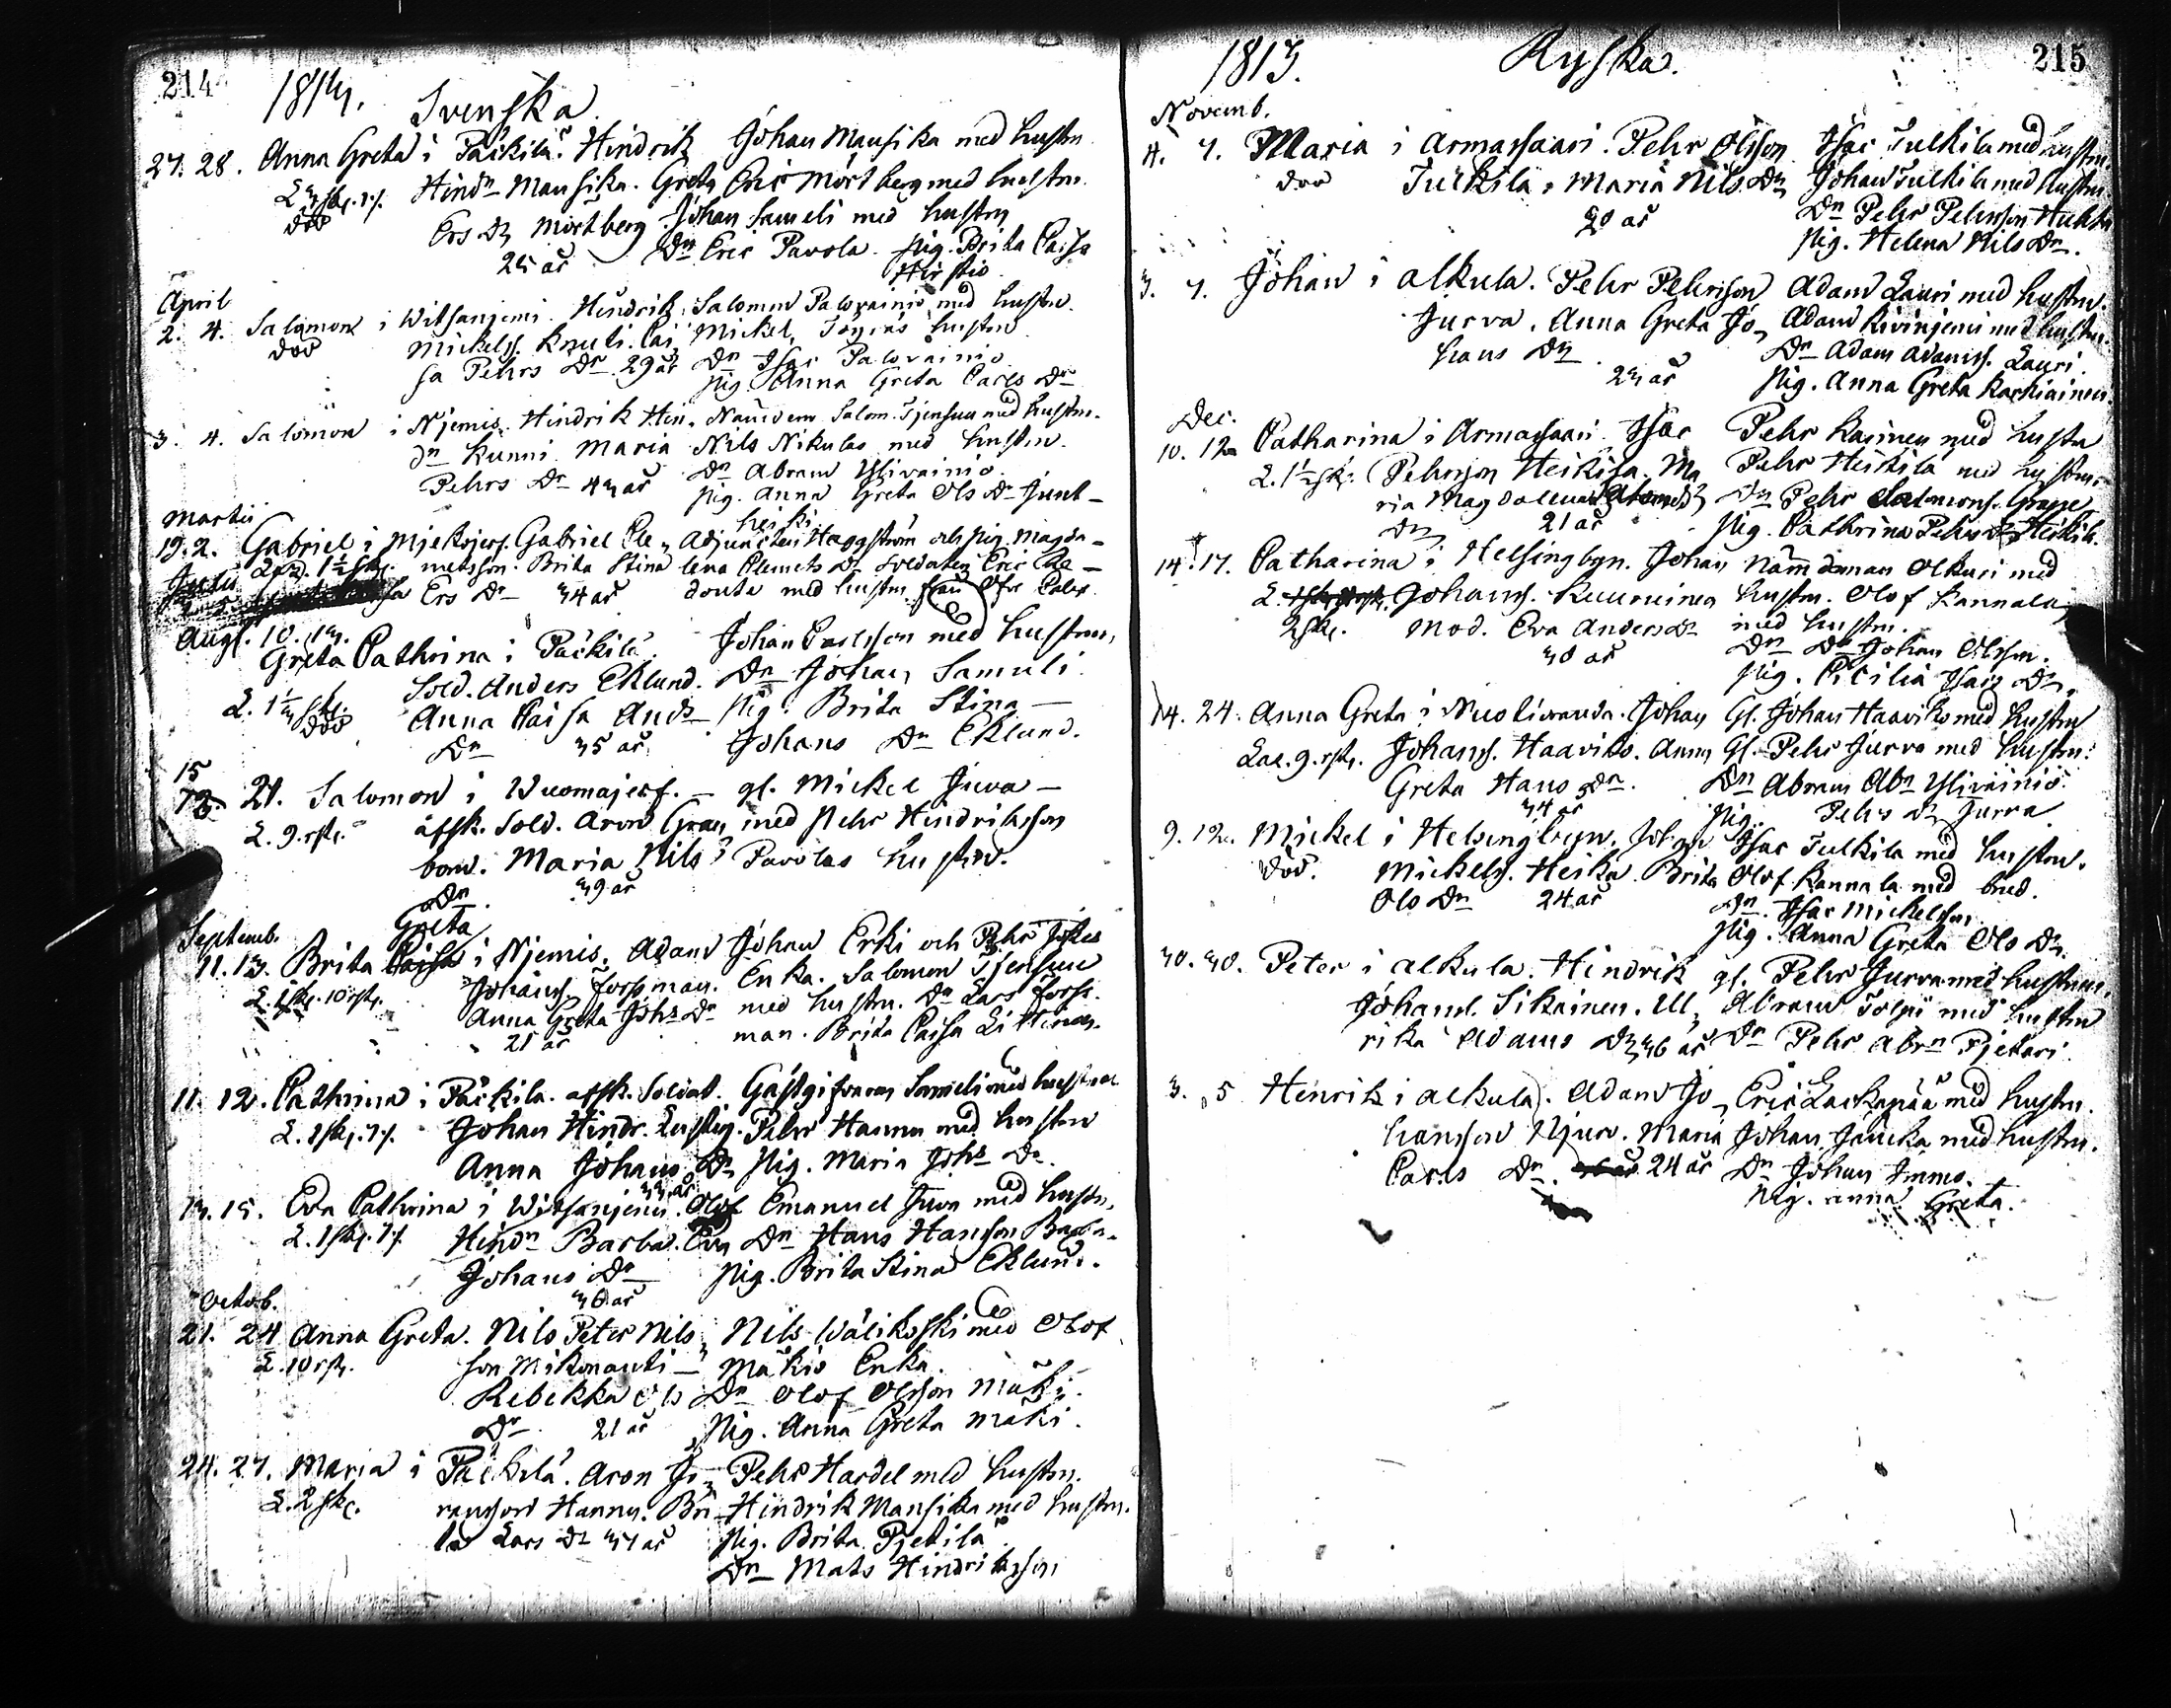 214
1813. Svenska
27. 28. Anna Greta i Päckilä. Hindrik Johan Mansika med hustru
Hindn Mansika. Greta Eric Mörtberg med hustru
död
Ers Dr Mörtberg. Johan Sameli med hustru
25 år Dn Eric Pavola. Pig. Brita Caisa
April
2. 4. Salomon i Witsanjemi. Hindrik Salomon Palovainio med hustru.
död Mickelss. Knuti. Cai Mickel hustru
sa Pehrs Dr 29 år Dn Isac Palovainio
Pig. Anna Greta Carls Dr
3. 4. Salomon i Njemis. Hindrik Hin Nämdem Salom. Tjensuu med hustru.
dn Kunni Maria Nils Nikulas med hustru.
Pehrs Dr 43 år Dn Abram Ylivainio
Pig. Anna Greta Ols Dr Junt-
heiki
Martii
19. 2. Gabriel i Mjekojerf. Gabriel Cle Adjuncten Häggström och Pig. Magda-
metsson. Brita Stina lena Clemets Dr Soldaten Eric Cle-
Ers Dr 34 år med hustru
Augs. 10. 13.
Greta Cathrina i Päckilä. Johan Carlsson med hustru,
Sold. Anders Eklund. Dn Johan Samuli
2. 1½ sk.
död Anna Caisa And Pig. Brita Stina
Dr 35 år Johans Dr Eklund.
15
21. Salomon i Wuomajerf. gl. Mickel Juva
2. 9. rst. afsk. Sold. Aron Gran med Pehr Hindriksson
Maria Nils Pavolas hustru.
Dr 39 år
Septemb. Greta
11. 13. Brita Caisa i Njemis. Adam Johan Erki och Pehr
Johanss. Forssman. Enka. Salomon Tjensuu
2. 1 sk. 10 rst. Anna Greta Johs Dr med hustru. Dn Lars Forss-
21 år man. Brita Caisa
11. 12. Cathrina i Päckilä. afsk. Soldat. Gästgifvaren Sameli med hustru
Johan Hindr. Lustig. Pehr Hannu med hustru
Anna Johans Dr Pig. Maria Johs Dr
33 år
13. 15. Eva Cathrina i Witsanjemi. Olof Emanuel Juva med hustru,
Hindn Barba. Eva Dn Hans Hansson Barba.
Johans Dr Pig. Brita Stina Eklund.
30 år
Octob.
21. 24 Anna Greta. Nils Peter Nils Nils Wälikoski med Olof
2. 10 rst. son Mikonanti Mäkis Enka.
Rebekka Ols Dn Olof Olsson Mäki.
Dr 21 år Pig. Anna Greta Mäki.
24. 27. Maria i Päckilä. Aron Jö Pehr Hardel med hustru.
2. 2 sk. ransson Hannu. Bri Hindrik Mansika med hustru.
ta Lars Dr 37 år Pig. Brita Pjetilä
Dn Mats Hindriksson
1813. Ryska. 215
Novemb.
4. 7. Maria i Armassaari. Pehr Olsson Isac Tulkila med hustru,
död Tulkila. Maria Nils Dr Johan Tulkila med hustru
20 år Dn Pehr Pehrsson
Pig. Helena Nils Dr.
3. 7. Johan i Alkula. Pehr Pehrsson Adam Lauri med hustru.
Jurva. Anna Greta Jo Adam Kivinjemi med hustru.
hans Dr Dn Adam Adamss. Lauri.
23 år Pig. Anna Greta Karkiainen
Dec.
10. 12 Catharina i Armassaari. Isac Pehr Karinen med hustru
2. 1½ sk. Pehrsson Heikila. Ma Pehr Heikilä med hustru.
ria Magdalena Dn Pehr Salomons. Grape
Dr 21 år Pig. Cathrina Pehrs Dr Heikil.
14. 17. Catharina i Helsingbyn. Johan Nämdeman Olkuri med
Johanss. Kuuruinen hustru. Olof Kannala
2 sk. Mod. Eva Anders Dr med hustru.
30 år Dn Johan Olsson.
Pig. Cicilia Isacs Dr.
14. 24. Anna Greta i Nuotioranda. Johan Gl. Johan Haaviko med hustru
2. 9. rst. Johanss. Haaviko. Anna Gl. Pehr Jurva med hustru.
Greta Hans Dr. Dn Abram Abn Ylivainio.
34 år Pig. Pehrs Dr Jurva
9. 12. Mickel i Helsingbyn. Johan Isac Tulkila med hustru.
död. Mickelss. Heika. Brita Olof Kannala med brud.
Ols Dr 24 år Dn. Isac Mickelsson
Pig. Anna Greta Ols Dr.
30. 30. Peter i Alkula. Hindrik gl. Pehr Jurva med hustru,
Johanss. Sikainen. Ul Abram Tolpi med hustru
rika Adams Dr 36 år Dn Pehr Abrn Pjetari.
3. 5 Henrik i Alkula. Adam Jo Eric Laxkapää med hustru.
hansson Njura. Maria Johan Jauka med hustru.
Carls Dr. 24 år Dn Johan Immo.
Pig. Anna Greta.